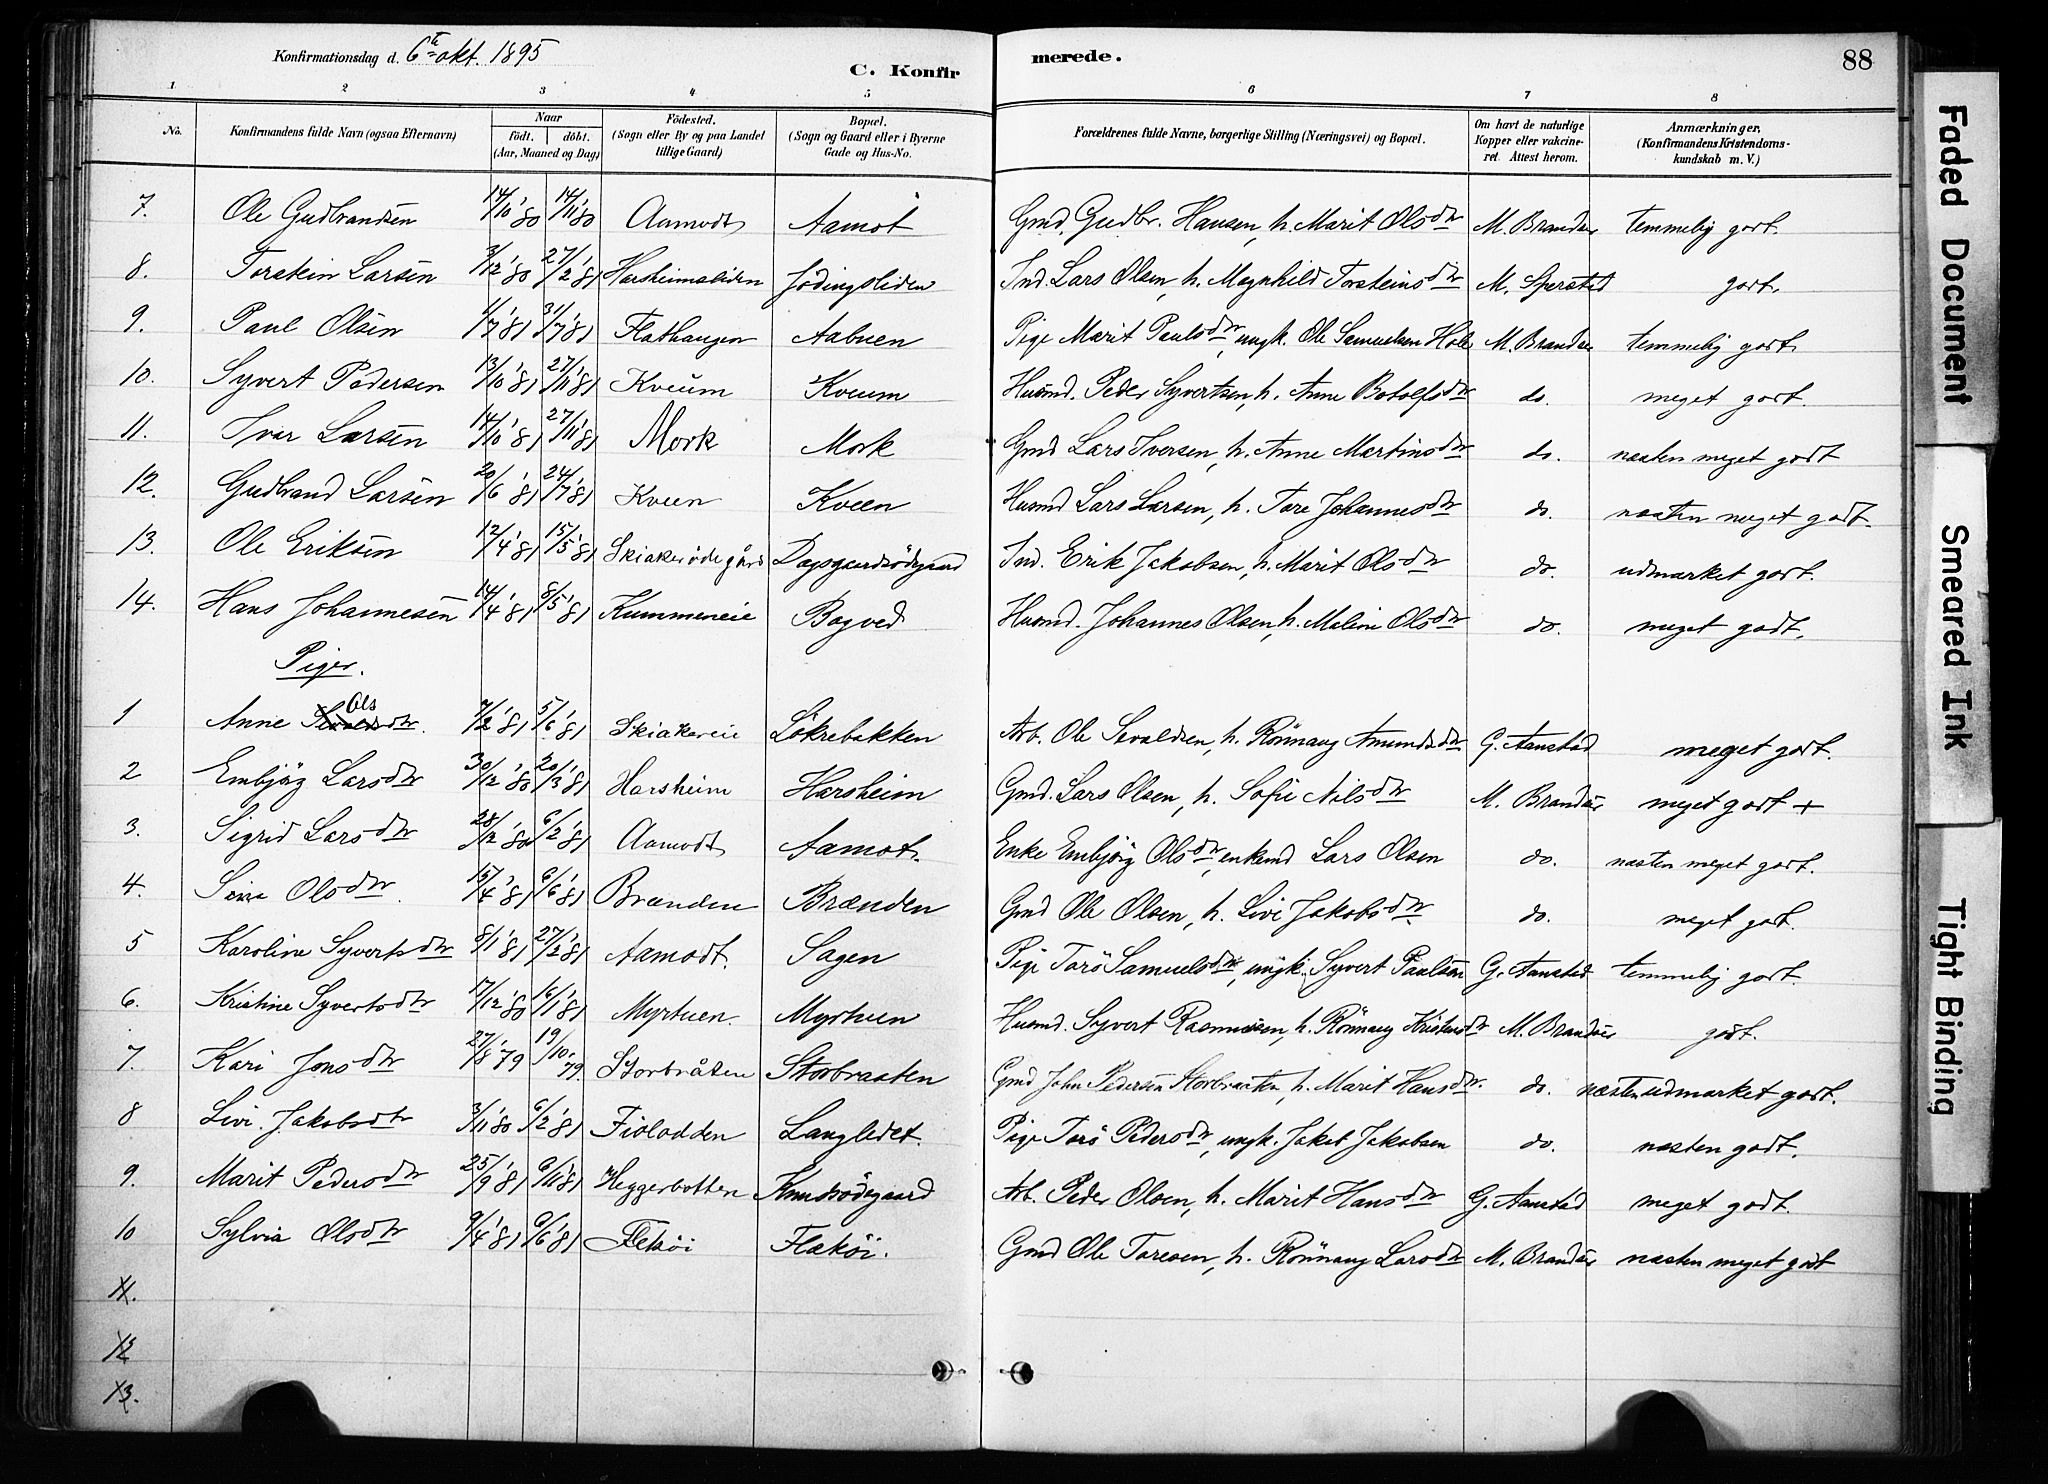 Konfirmationsdag d. 6te okt. 1895
C. Konfirmerede.
88
1 2 3 4 5 6 7 8
No. Konfirmandens fulde Navn (ogsaa Efternavn) Naar født. døbt. (Aar, Maaned og Dag) Fødested. (Sogn eller By og paa Landet tillige Gaard) Bopæl. (Sogn og Gaard eller i Byerne Gade og Hus-No. Forældrenes fulde Navne, borgerlige Stilling (Næringsvei) og Bopæl. Om havt de naturlige Kopper eller vakcineret. Attest herom. Anmærkninger, (Konfirmandens Kristendomskundskab m. V.)
7. Ole Gudbrandsen 14/10 '80 14/11 '80 Aamodt Aamot Gmd. Gudbr. Hansen, h. Marit Olsdtr M. Brandær temmelig godt.
8. Torstein Larsen 3/12 '80 27/2 '81 Harsheimsliden Jödingsliden Ind. Lars Olsen, h. Magnhild Torsteinsdtr M. Sperstad godt.
9. Paul Olsen 1/7 '81 31/7 '81 Flathaugen Aabuen Pige Marit Paulsdtr, ungk. Ole Samuelsen Hole M. Brandær temmelig godt
10. Syvert Pedersen 13/10 '81 27/11 '81 Kveum Kveum Husmd. Peder Syvertsen, h. Anne Botolfsdtr do. meget godt.
11. Ivar Larsen 14/10 '81 27/11 '81 Mork Mork Gmd Lars Iversen, h. Anne Martinsdtr do. næsten meget godt
12. Gudbrand Larsen 20/6 '81 24/7 '81 Kveen Kveen Husmd Lars Larsen, h. Tore Johannesdtr do. næsten meget godt
13. Ole Eriksen 12/4 '81 15/5 '81 Skiakerödegård Dagsgaardsödegaard Ind. Erik Jakobsen, h. Marit Olsdtr do. udmærket godt.
14. Hans Johannesen 14/4 '81 6/5 '81 Kummeneie Bogved Husmd. Johannes Olsen, h. Malene Olsdtr do. meget godt.
Piger.
1 Anne Olsdtr. 7/2 '81 5/6 '81 Skiakereie Lökrebakken Arb. Ole Sevaldsen, h. Rönnaug Amundsdtr G. Aanstad meget godt.
2 Embjörg Larsdtr 30/12 '80 20/3 '81 Harsheim Harsheim Gmd. Lars Olsen, h. Sofie Nilsdtr M. Brandær meget godt +
3. Sigrid Larsdtr 28/12 '80 6/2 '81 Aamodt Aamot. Enke Embjörg Olsdtr, enkemd Lars Olsen do. næsten meget godt.
4. Olsdtr. 15/4 '81 6/6 '81 Brænden Brænden Gmd Ole Olsen, h. Livi Jakobsdtr. do. meget godt.
5 Karoline Syvertsdtr 8/1 '81 27/2 '81 Aamodt. Sagen Pige Torö Samuelsdtr, ungk. Syvert Paulsen G. Aanstad temmelig godt.
6. Kristine Syvertsdtr 17/12 '80 16/1 '81 Myrtuen. Myrtuen Husmd. Syvert Rasmussen, h. Rönnaug Kristensdtr M. Brandær godt.
7. Kari Jonsdtr 27/8 '79 19/10 '79. Storbråten Storbraaten Gmd John Pedersen Storbraaten, h. Marit Hansdtr. do. næsten udmærket godt.
8 Livi Jakobsdtr 3/11 '80 6/2 '81 Fiolodden Langledet. Pige Torö Pedersdtr, ungk. Jakob Jakobsen do. næsten godt.
9. Marit Pedersdtr 25/9 '81 6/11 '81 Heggerbotten Knudsödegaard Arb. Peder Olsen, h. Marit Hansdtr G. Aanstad meget godt.
10 Sylvia Olsdtr 9/4 '81 6/6 '81 Fleköi Flaköi. Gmd Ole Toresen, h. Rönnaug Larsdtr M. Brandær næsten meget godt
11.
12
13.
Faded Document
Smeared Ink
Tight Binding